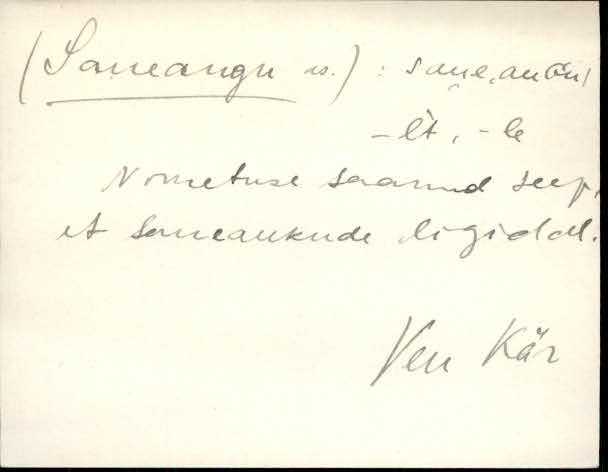 (Saueaugu as.) : saue, auGu,
-l̀t, -le
Nometuse saanud seep.
et saueaukude ligidal.
Ven Kär